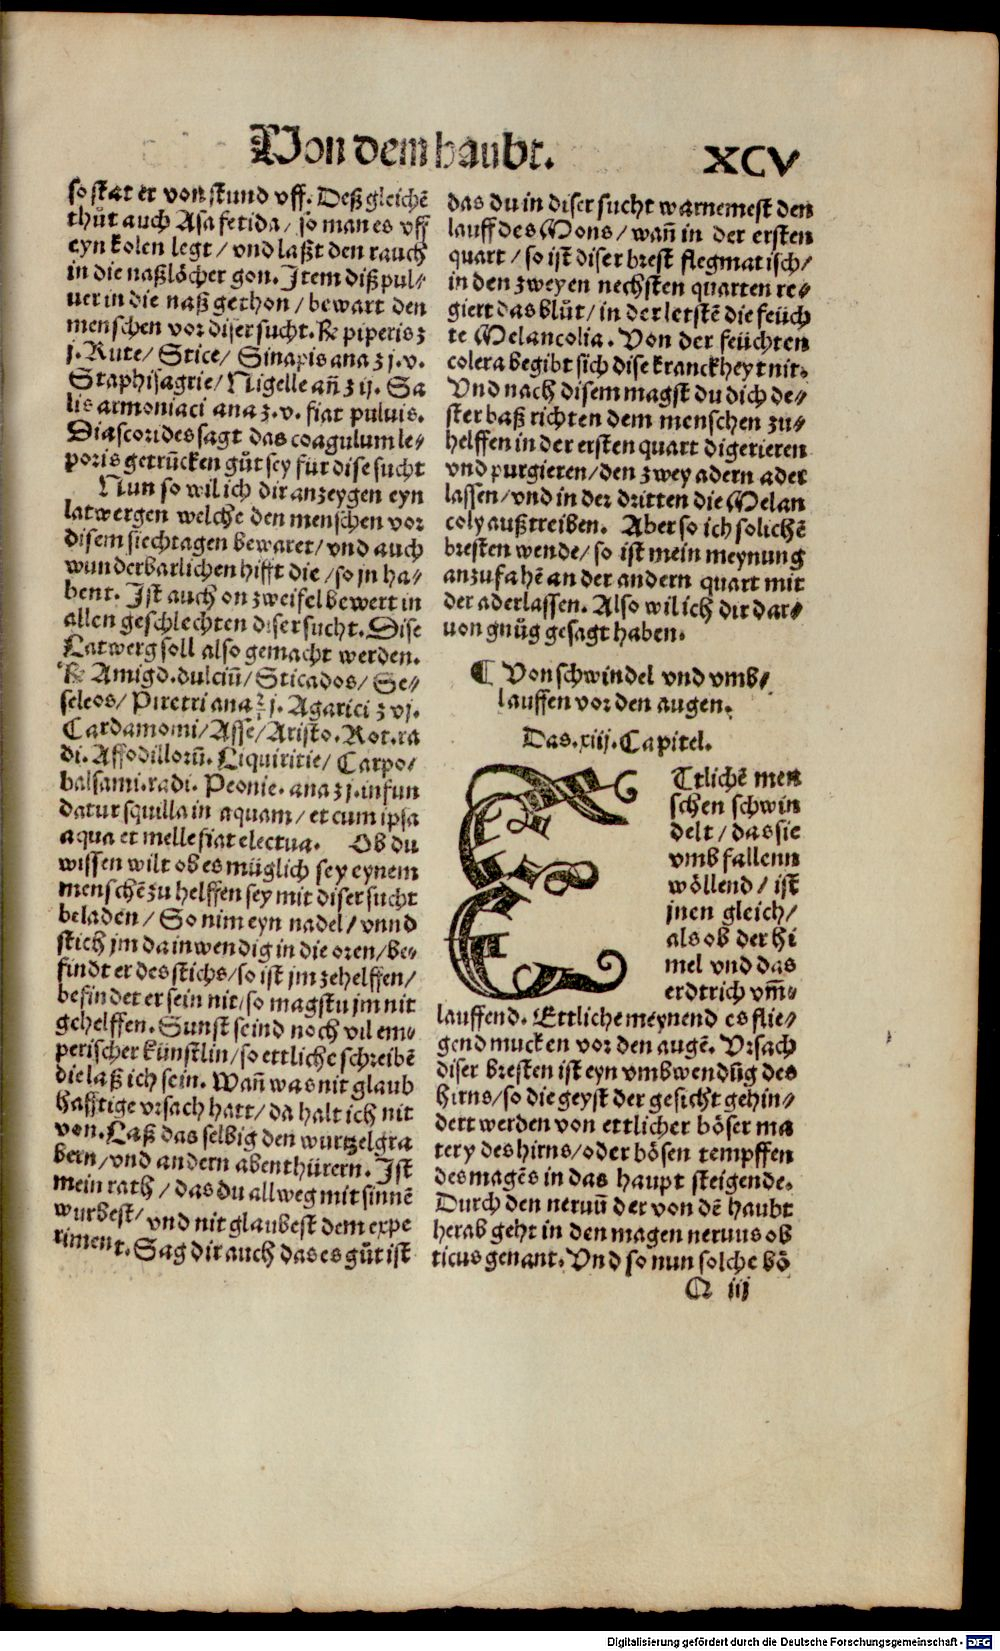 Von dem haubt.
XCV
so stat er von stund vff. Deß gleichẽ
thůt auch Asa fetida / so man es vff
eyn kolen legt / vnd laßt den rauch
in die naßlöcher gon. Item diß pul⸗
uer in die naß gethon / bewart den
menschen vor diser sucht. ℞ piperis ʒ
j. Rute / Stice / Sinapis ana ʒ j. v.
Staphisagrie / Nigelle añ ʒ ij. Sa
lis armoniaci ana ʒ. v. fiat puluis.
Diascorides sagt das coagulum le⸗
poris getrũcken gůt sey für dise sucht
Nun so wil ich dir anzeygen eyn
latwergen welche den menschen vor
disem siechtagen bewaret / vnd auch
wunderbarlichen hifft die / so jn ha⸗
bent. Ist auch on zweifel bewert in
allen geschlechten diser sucht. Dise
Latwerg soll also gemacht werden.
℞ Amigd. dulciũ / Sticados / Se⸗
seleos / Piretri ana ℥ j. Agarici ʒ vj.
Cardamomi / Asse / Aristo. Rot. ra
di. Affodillorũ. Liquiritie / Carpo⸗
balsami. radi. Peonie. ana ʒ j. infun
datur squilla in aquam / et cum ipsa
aqua et melle fiat electua. Ob du
wissen wilt ob es müglich sey eynem
menschẽ zu helffen sey mit diser sucht
beladen / So nim eyn nadel / vnnd
stich jm da inwendig in die oren / be⸗
findt er des stichs / so ist jm zehelffen /
befindet er sein nit / so magstu jm nit
gehelffen. Sunst seind noch vil em⸗
perischer künstlin / so ettliche schreibẽ
die laß ich sein. Wañ was nit glaub
hafftige vrsach hatt / da halt ich nit
von. Laß das selbig den wurtzelgra
bern / vnd andern abenthürern. Ist
mein rath / das du allweg mit sinnẽ
wurbest / vnd nit glaubest dem expe
riment. Sag dir auch das es gůt ist
das du in diser sucht warnemest den
lauff des Mons / wañ in der ersten
quart / so ist diser brest flegmatisch /
in den zweyen nechsten quarten re⸗
giert das blůt / in der letstẽ die feüch
te Melancolia. Von der feüchten
colera begibt sich dise kranckheyt nit.
Vnd nach disem magst du dich de⸗
ster baß richten dem menschen zu⸗
helffen in der ersten quart digerieren
vnd purgieren / den zwey adern ader
lassen / vnd in der dritten die Melan
coly außtreiben. Aber so ich solichẽ
bresten wende / so ist mein meynung
anzufahẽ an der andern quart mit
der aderlassen. Also wil ich dir dar⸗
uon gnůg gesagt haben.
¶ Von schwindel vnd vmb⸗
lauffen vor den augen.
Das .xiij. Capitel.
ETtlichẽ men
schen schwin
delt / das sie
vmb fallenn
wöllend / ist
jnen gleich /
als ob der hi
mel vnd das
erdtrich vm̃⸗
lauffend. Ettliche meynend es flie⸗
gend mucken vor den augẽ. Vrsach
diser bresten ist eyn vmbwendũg des
hirns / so die geyst der gesicht gehin⸗
dert werden von ettlicher böser ma
tery des hirns / oder bösen tempffen
des magẽs in das haupt steigende.
Durch den neruũ der von dẽ haubt
herab geht in den magen neruus ob
ticus genant. Vnd so nun solche bö
Q iij
Digitalisierung gefördert durch die Deutsche Forschungsgemeinschaft - DFG